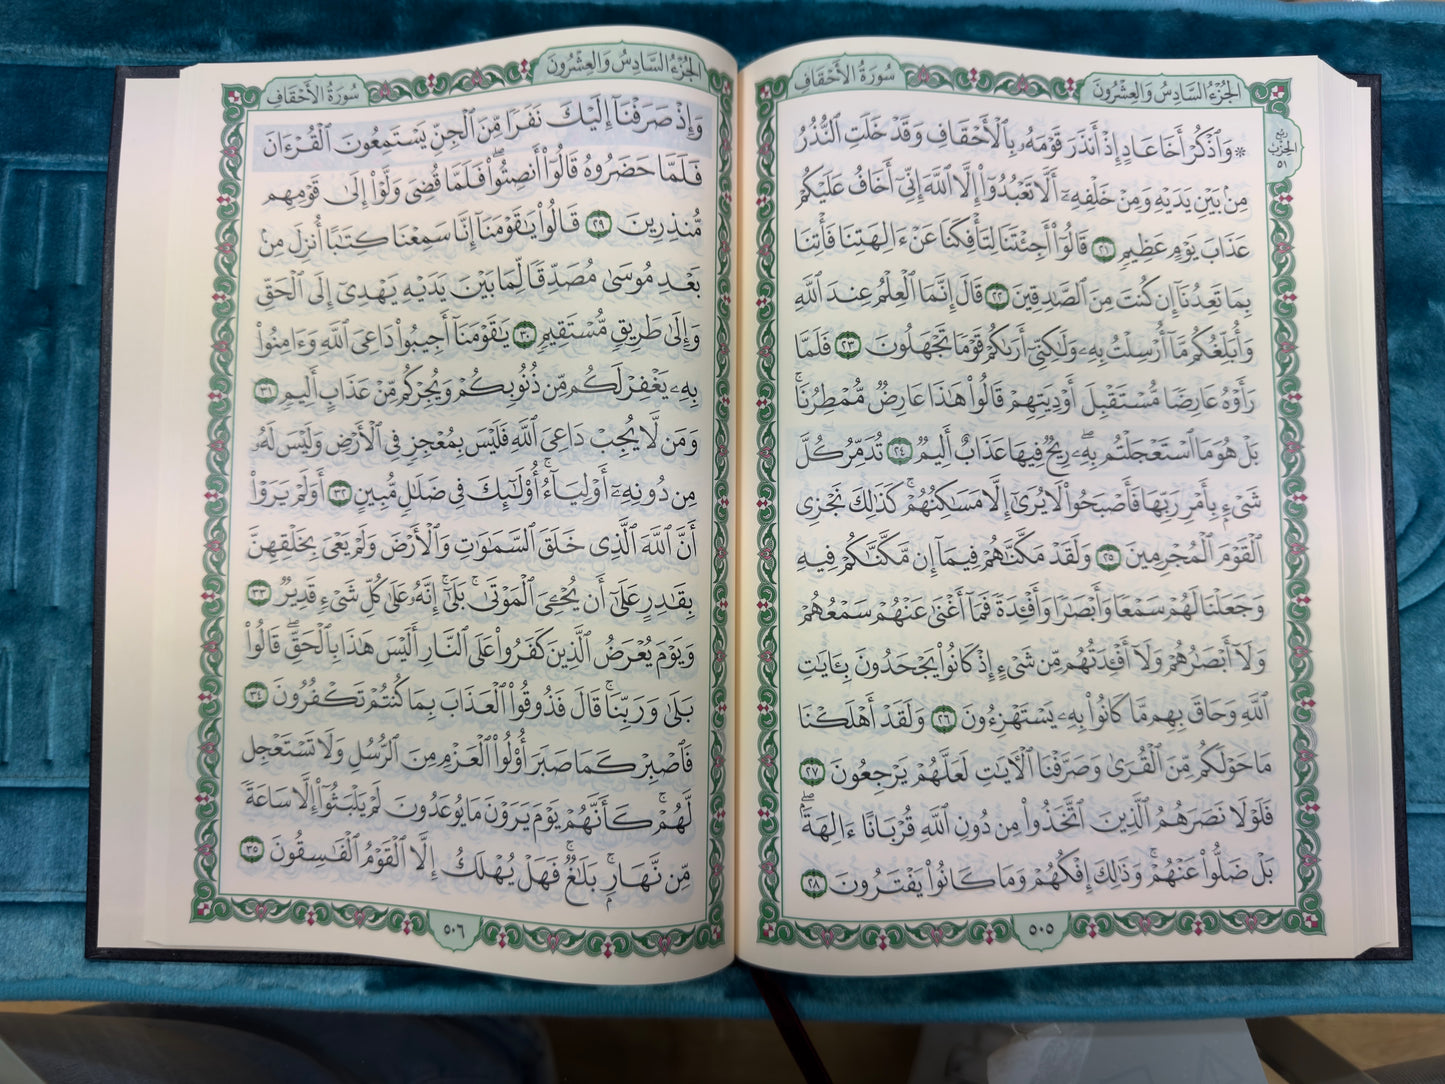 سُورَةُ الأَحْقَافِ
الجُزْءُ السَّادِسُ وَالعِشْرُونَ
ربع
الحِزْب
٥١
۞ وَٱذْكُرْ أَخَا عَادٍ إِذْ أَنذَرَ قَوْمَهُۥ بِٱلْأَحْقَافِ وَقَدْ خَلَتِ ٱلنُّذُرُ
مِنۢ بَيْنِ يَدَيْهِ وَمِنْ خَلْفِهِۦٓ أَلَّا تَعْبُدُوٓا۟ إِلَّا ٱللَّهَ إِنِّىٓ أَخَافُ عَلَيْكُمْ
عَذَابَ يَوْمٍ عَظِيمٍ ٢١ قَالُوٓا۟ أَجِئْتَنَا لِتَأْفِكَنَا عَنْ ءَالِهَتِنَا فَأْتِنَا
بِمَا تَعِدُنَآ إِن كُنتَ مِنَ ٱلصَّٰدِقِينَ ٢٢ قَالَ إِنَّمَا ٱلْعِلْمُ عِندَ ٱللَّهِ
وَأُبَلِّغُكُم مَّآ أُرْسِلْتُ بِهِۦ وَلَٰكِنِّىٓ أَرَىٰكُمْ قَوْمًا تَجْهَلُونَ ٢٣ فَلَمَّا
رَأَوْهُ عَارِضًا مُّسْتَقْبِلَ أَوْدِيَتِهِمْ قَالُوا۟ هَٰذَا عَارِضٌ مُّمْطِرُنَا ۚ
بَلْ هُوَ مَا ٱسْتَعْجَلْتُم بِهِۦ ۖ رِيحٌ فِيهَا عَذَابٌ أَلِيمٌ ٢٤ تُدَمِّرُ كُلَّ
شَىْءٍۭ بِأَمْرِ رَبِّهَا فَأَصْبَحُوا۟ لَا يُرَىٰٓ إِلَّا مَسَٰكِنُهُمْ ۚ كَذَٰلِكَ نَجْزِى
ٱلْقَوْمَ ٱلْمُجْرِمِينَ ٢٥ وَلَقَدْ مَكَّنَّٰهُمْ فِيمَآ إِن مَّكَّنَّٰكُمْ فِيهِ
وَجَعَلْنَا لَهُمْ سَمْعًا وَأَبْصَٰرًا وَأَفْـِٔدَةً فَمَآ أَغْنَىٰ عَنْهُمْ سَمْعُهُمْ
وَلَآ أَبْصَٰرُهُمْ وَلَآ أَفْـِٔدَتُهُم مِّن شَىْءٍ إِذْ كَانُوا۟ يَجْحَدُونَ بِـَٔايَٰتِ
ٱللَّهِ وَحَاقَ بِهِم مَّا كَانُوا۟ بِهِۦ يَسْتَهْزِءُونَ ٢٦ وَلَقَدْ أَهْلَكْنَا
مَا حَوْلَكُم مِّنَ ٱلْقُرَىٰ وَصَرَّفْنَا ٱلْءَايَٰتِ لَعَلَّهُمْ يَرْجِعُونَ ٢٧
فَلَوْلَا نَصَرَهُمُ ٱلَّذِينَ ٱتَّخَذُوا۟ مِن دُونِ ٱللَّهِ قُرْبَانًا ءَالِهَةًۢ ۖ
بَلْ ضَلُّوا۟ عَنْهُمْ ۚ وَذَٰلِكَ إِفْكُهُمْ وَمَا كَانُوا۟ يَفْتَرُونَ ٢٨
٥٠٥
الجُزْءُ السَّادِسُ وَالعِشْرُونَ
سُورَةُ الأَحْقَافِ
وَإِذْ صَرَفْنَآ إِلَيْكَ نَفَرًا مِّنَ ٱلْجِنِّ يَسْتَمِعُونَ ٱلْقُرْءَانَ
فَلَمَّا حَضَرُوهُ قَالُوٓا۟ أَنصِتُوا۟ ۖ فَلَمَّا قُضِىَ وَلَّوْا۟ إِلَىٰ قَوْمِهِم
مُّنذِرِينَ ٢٩ قَالُوا۟ يَٰقَوْمَنَآ إِنَّا سَمِعْنَا كِتَٰبًا أُنزِلَ مِنۢ
بَعْدِ مُوسَىٰ مُصَدِّقًا لِّمَا بَيْنَ يَدَيْهِ يَهْدِىٓ إِلَى ٱلْحَقِّ
وَإِلَىٰ طَرِيقٍ مُّسْتَقِيمٍ ٣٠ يَٰقَوْمَنَآ أَجِيبُوا۟ دَاعِىَ ٱللَّهِ وَءَامِنُوا۟
بِهِۦ يَغْفِرْ لَكُم مِّن ذُنُوبِكُمْ وَيُجِرْكُم مِّنْ عَذَابٍ أَلِيمٍ ٣١
وَمَن لَّا يُجِبْ دَاعِىَ ٱللَّهِ فَلَيْسَ بِمُعْجِزٍ فِى ٱلْأَرْضِ وَلَيْسَ لَهُۥ
مِن دُونِهِۦٓ أَوْلِيَآءُ ۚ أُو۟لَٰٓئِكَ فِى ضَلَٰلٍ مُّبِينٍ ٣٢ أَوَلَمْ يَرَوْا۟
أَنَّ ٱللَّهَ ٱلَّذِى خَلَقَ ٱلسَّمَٰوَٰتِ وَٱلْأَرْضَ وَلَمْ يَعْىَ بِخَلْقِهِنَّ
بِقَٰدِرٍ عَلَىٰٓ أَن يُحْـِۧىَ ٱلْمَوْتَىٰ ۚ بَلَىٰٓ إِنَّهُۥ عَلَىٰ كُلِّ شَىْءٍ قَدِيرٌ ٣٣
وَيَوْمَ يُعْرَضُ ٱلَّذِينَ كَفَرُوا۟ عَلَى ٱلنَّارِ أَلَيْسَ هَٰذَا بِٱلْحَقِّ ۖ قَالُوا۟
بَلَىٰ وَرَبِّنَا ۚ قَالَ فَذُوقُوا۟ ٱلْعَذَابَ بِمَا كُنتُمْ تَكْفُرُونَ ٣٤
فَٱصْبِرْ كَمَا صَبَرَ أُو۟لُوا۟ ٱلْعَزْمِ مِنَ ٱلرُّسُلِ وَلَا تَسْتَعْجِل
لَّهُمْ ۚ كَأَنَّهُمْ يَوْمَ يَرَوْنَ مَا يُوعَدُونَ لَمْ يَلْبَثُوٓا۟ إِلَّا سَاعَةً
مِّن نَّهَارٍۭ ۚ بَلَٰغٌ ۚ فَهَلْ يُهْلَكُ إِلَّا ٱلْقَوْمُ ٱلْفَٰسِقُونَ ٣٥
٥٠٦